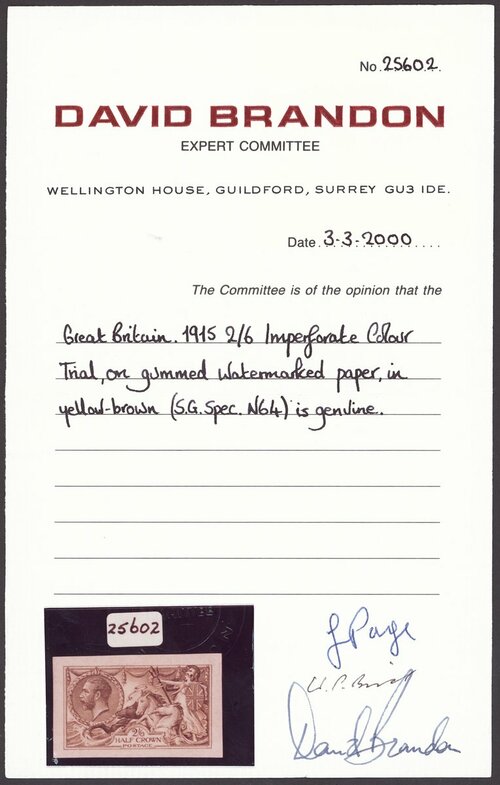 No. 25602.
DAVID BRANDON
EXPERT COMMITTEE
WELLINGTON HOUSE, GUILDFORD, SURREY GU3 IDE.
Date. 3-3-2000
The Committee is of the opinion that the
Great Britain. 1915 2/6 Imperforate Colour
Trial, on gummed watermarked paper, in
yellow-brown (S.G. Spec. N64) is genuine.
25602
2/6
HALF CROWN
POSTAGE
David Brandon